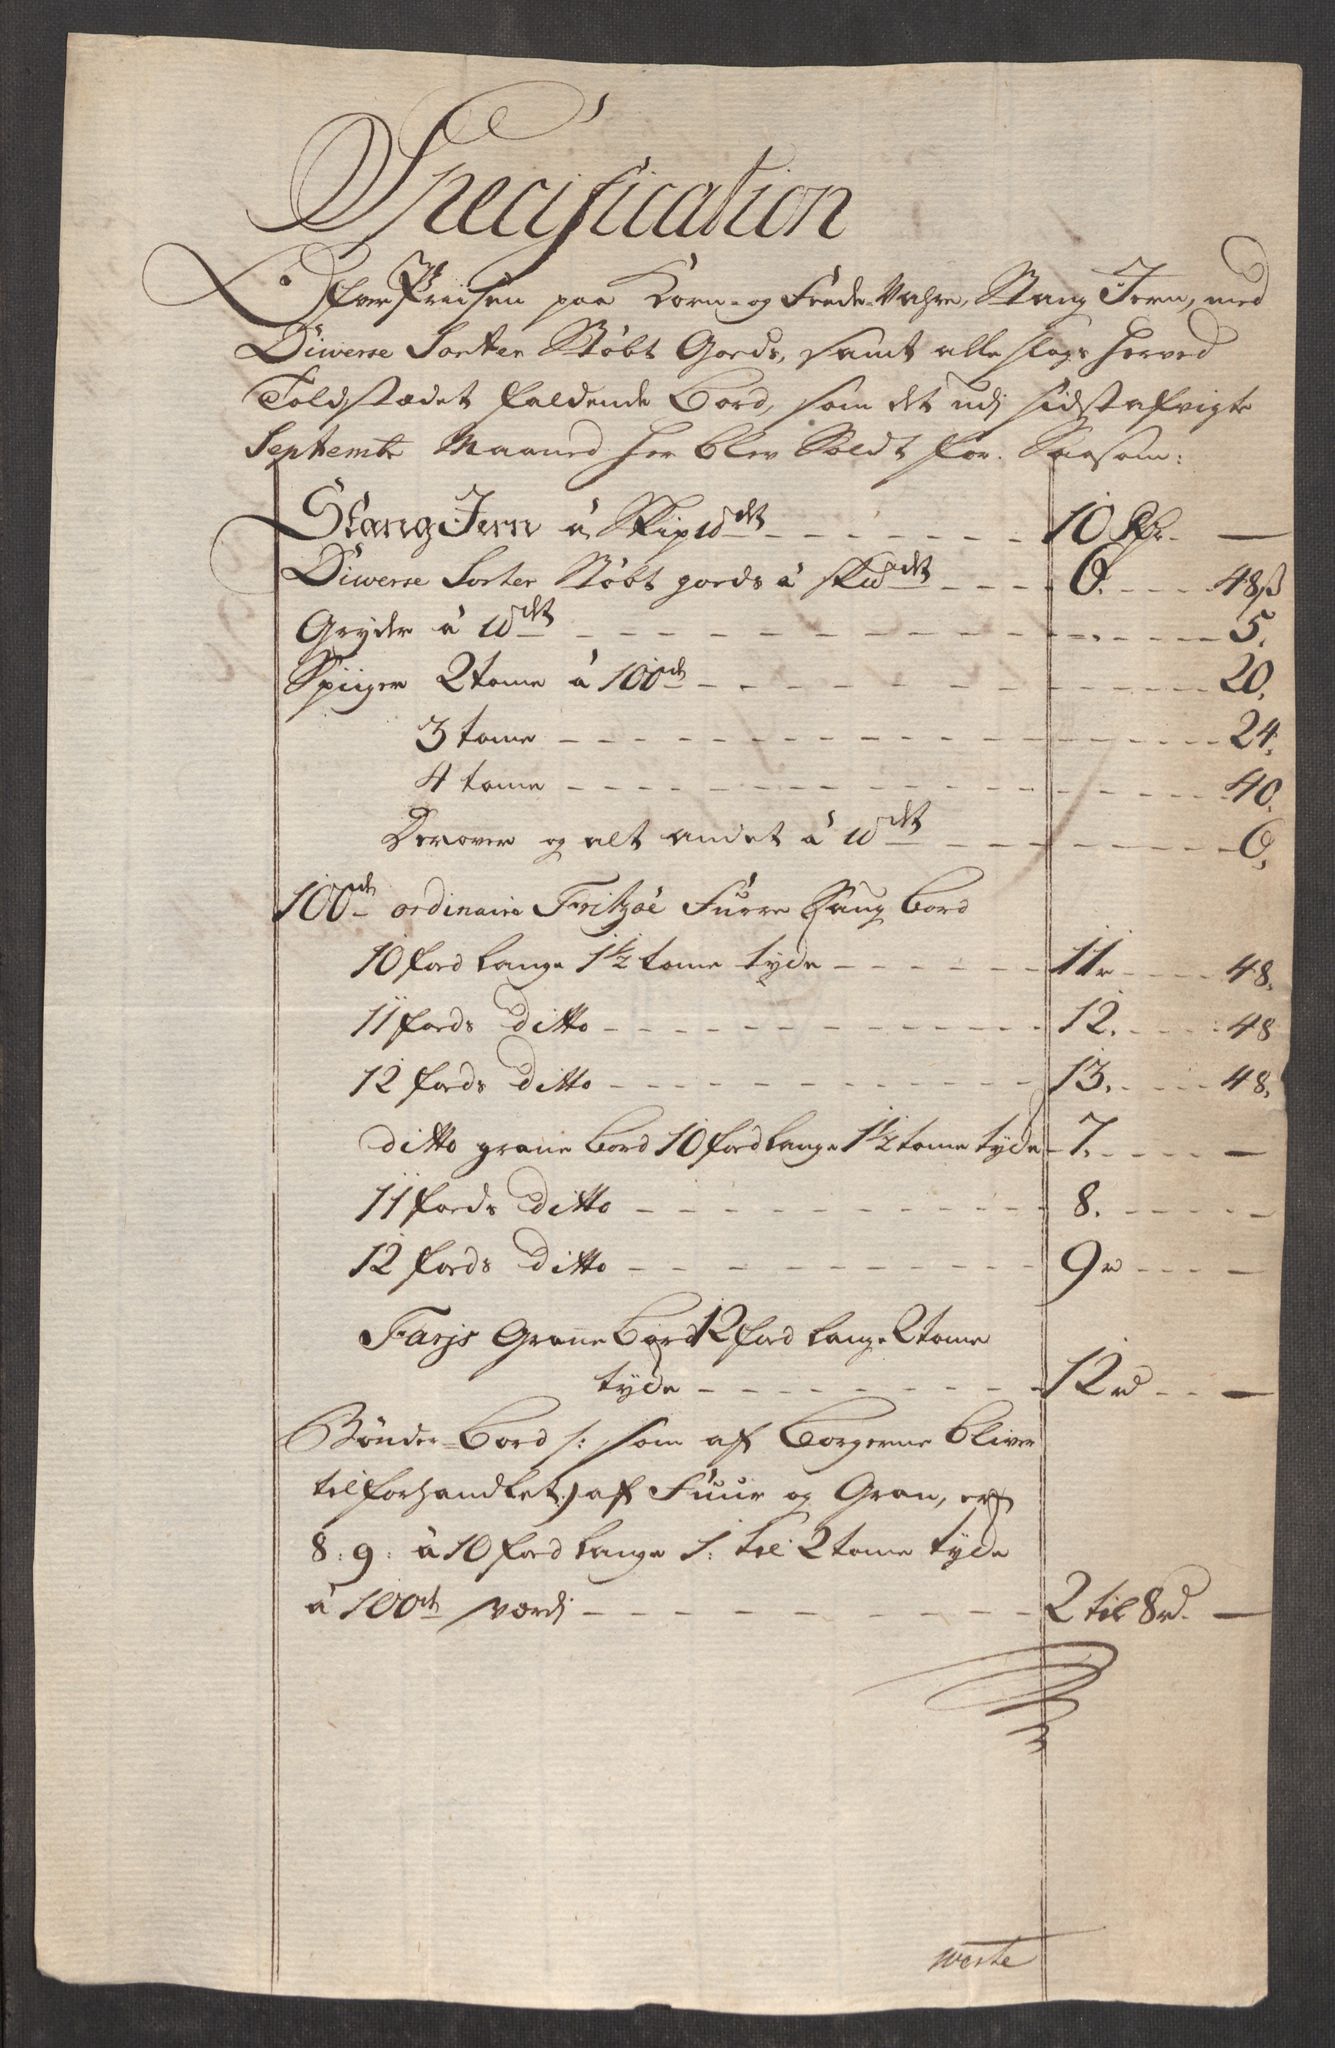 Specification
Over Priisen paa Korn- og Feede-Vahre, Stang Jern, med
Diverse Sorter Støbt Gods, samt alle slags herved
Toldstædet faldende Bord, som det udj sidstafvigte
Septembr Maaned her blev Soldt for. Saasom:
Stang Jern â Skip℔det - - - 10 Rdr. —
Diverse Sorter Støbt gods â Sk℔det - - - 6. - - 48ß
Gryder â ℔det - - - 5.
Spiiger 2 tome â 100de - - - 20.
3 tome - - - 24.
4 tome - - - 40.
Derover og alt andet â ℔det - - - 6.
100de ordinaire Fritzøe Furre Saug Bord
10 fod lange 1½ tome tyde - - - 11r - - 48.
11 fods ditto - - - 12. - - 48
12 fods ditto - - - 13. - - 48.
ditto grane Bord 10 fod lange 1½ tome tyde - 7. - - —
11 fods ditto - - - 8. - - —
12 fods ditto - - - 9r - - —
Farjs Grane Bord 12 fod lange 2 tome
tyde - - - 12rd - - —
Bønder-Bord /: som af Borgerne bliver
tilforhandlet :/ af Fuur og Gran, er
8: 9: â 10 fod lange 1: til 2 tome tyde
â 100de værdj - - - 2 til 8rd. —
verte